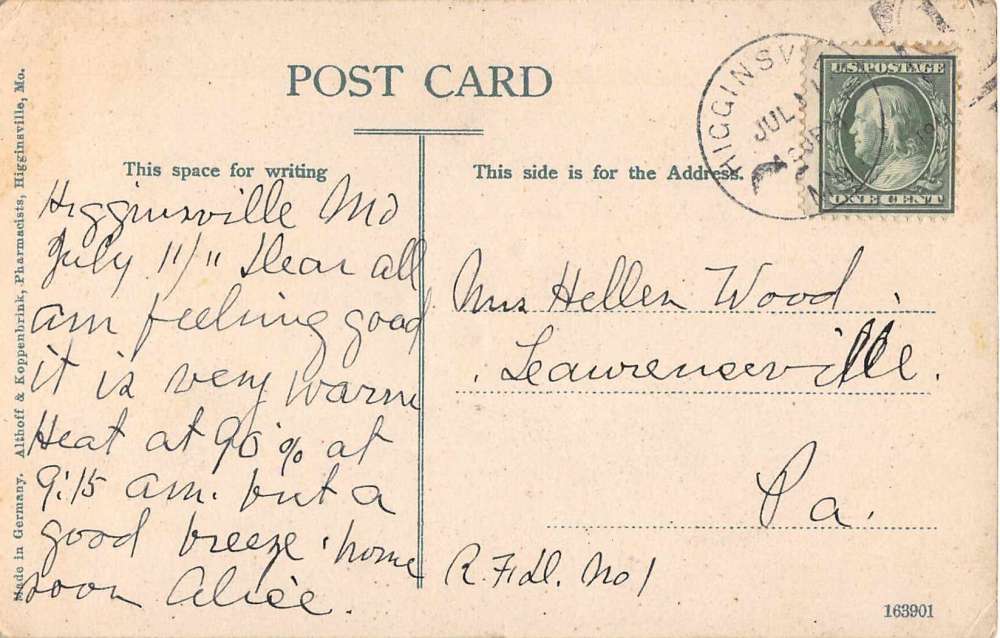 POST CARD
This space for writing
This side is for the Address.
Higginsville Mo
July 11/11 Dear all
am feeling good
it is very warm
Heat at 90% at
9:15 am. but a
good breeze. home
soon Alice.
Mrs Hellen Wood
Leawrenseville.
Pa.
R.F.d. No 1
HIGGINSVI
JUL
U.S. POSTAGE
ONE CENT
Made in Germany. Althoff & Koppenbrink, Pharmacists, Higginsville, Mo.
163901